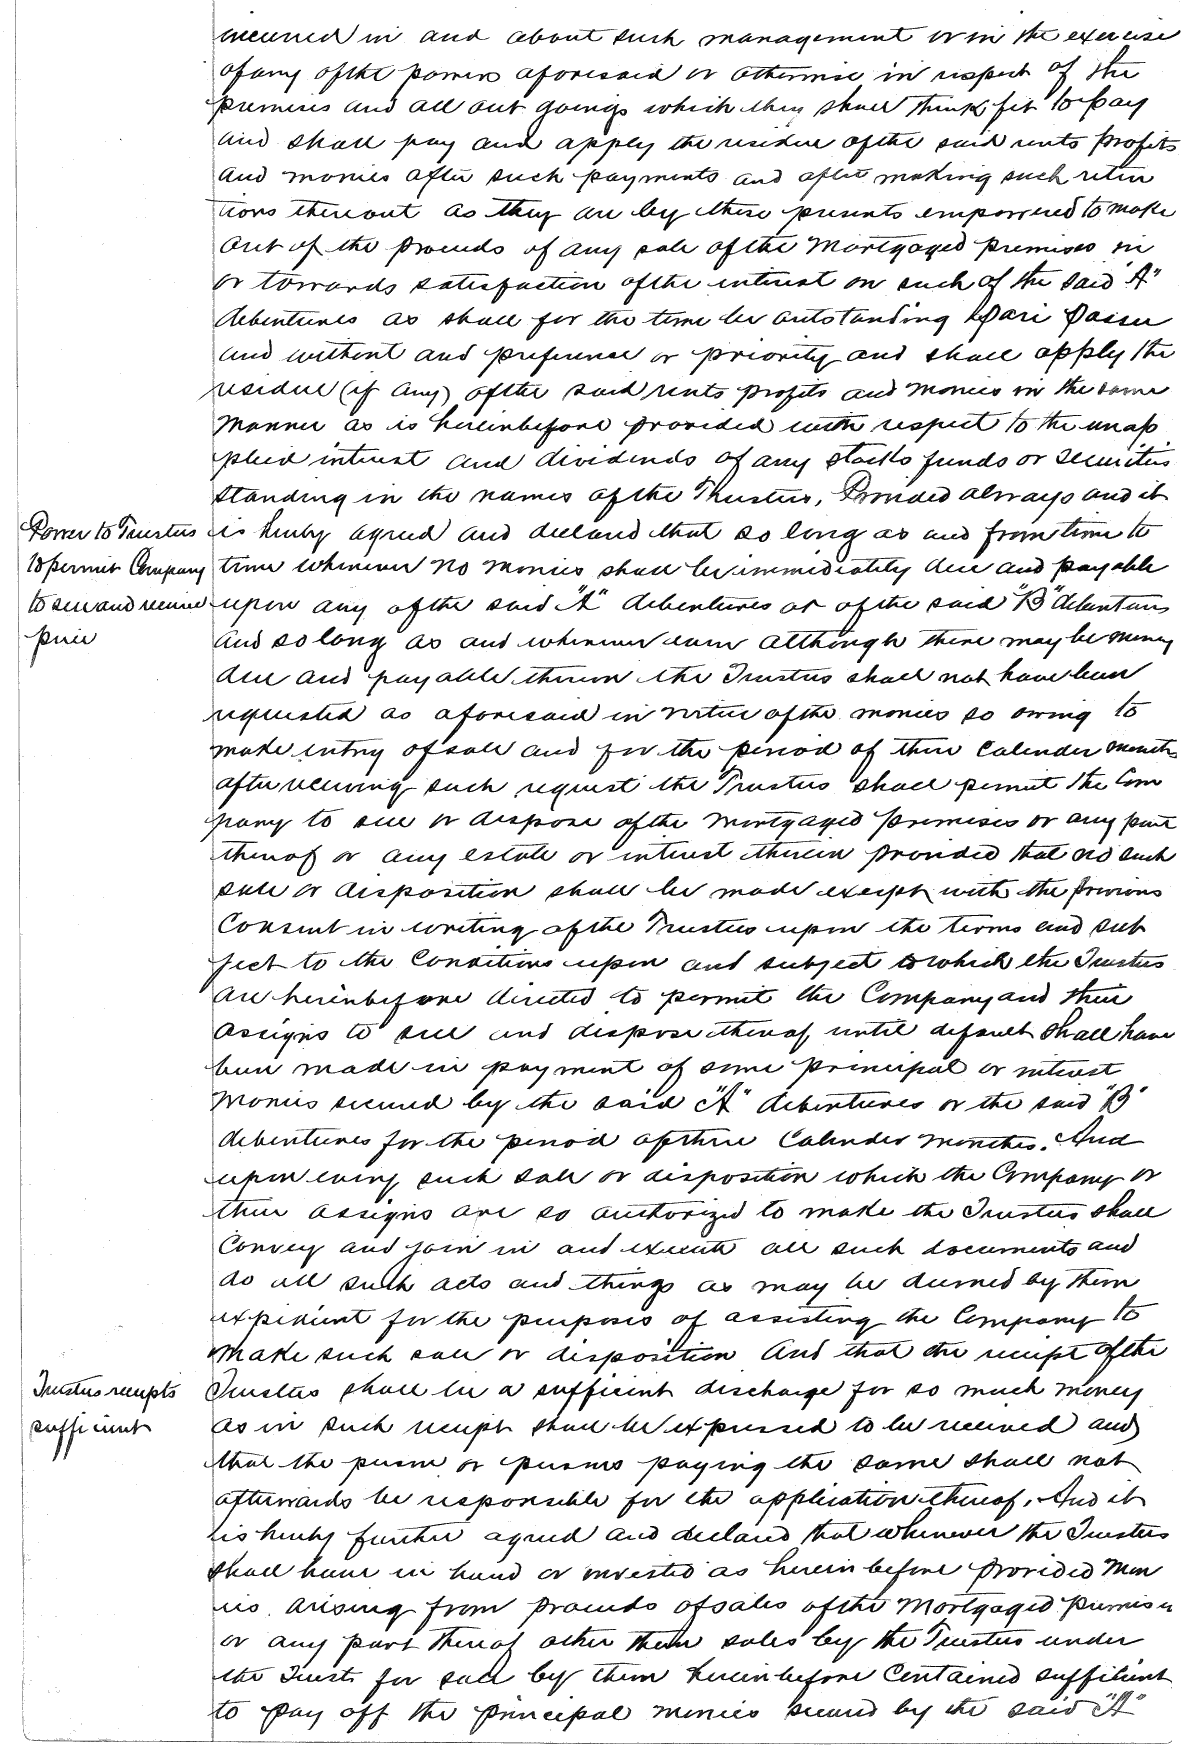 incurred in and about such management or in the exercise
of any of the powers aforesaid or otherwise in respect of the
premises and all out goings which they shall think fit to pay
and shall pay and apply the residue of the said rents profits
and monies after such payments and after making such reten
tions thereout as they are by these presents empowered to make
out of the proceeds of any sale of the Mortgaged premises in
or towards satisfaction of the interest on such of the said "A"
debentures as shall for the time be outstanding Pari Passu
and without and preference or priority and shall apply the
residue (if any) of the said rents profits and monies in the same
manner as is hereinbefore provided with respect to the unap
plied interest and dividends of any stocks funds or securities
standing in the names of the Trustees, Provided always and it
Power to Trustees
to permit Company
to sell and receive
price
is hereby agreed and declared that so long as and from time to
time whenever no monies shall be immediately due and payable
upon any of the said "A" debentures or of the said "B" debentures
and so long as and whenever even although there may be money
due and payable thereon the Trustees shall not have been
requested as aforesaid in virtue of the monies so owing to
make entry of sale and for the period of three Calender months
after receiving such request the Trustees shall permit the Com
pany to sell or dispose of the Mortgaged premises or any part
thereof or any estate or interest therein provided that no such
sale or disposition shall be made except with the previous
Consent in writing of the Trustees upon the terms and sub
ject to the Conditions upon and subject to which the Trustees
are hereinbefore directed to permit the Company and their
assigns to sell and dispose thereof until default shall have
been made in payment of some principal or interest
monies secured by the said "A" debentures or the said "B"
debentures for the period of three Calender months. And
upon every such sale or disposition which the Company or
their assigns are so authorized to make the Trustees shall
Convey and join in and execute all such documents and
do all such acts and things as may be deemed by them
expedient for the purposes of assisting the Company to
make such sale or disposition And that the receipt of the
Trustees receipts
sufficient
Trustees shall be a sufficient discharge for so much money
as in such receipt shall be expressed to be received and
that the person or persons paying the same shall not
afterwards be responsible for the application thereof. And it
is hereby further agreed and declared that whenever the Trustees
shall have in hand or invested as herein before provided Mon
ies arising from proceeds of sales of the Mortgaged premises
or any part thereof other then sales by the Trustees under
the Trusts for sale by them hereinbefore Contained sufficient
to pay off the principal monies secured by the said "A"